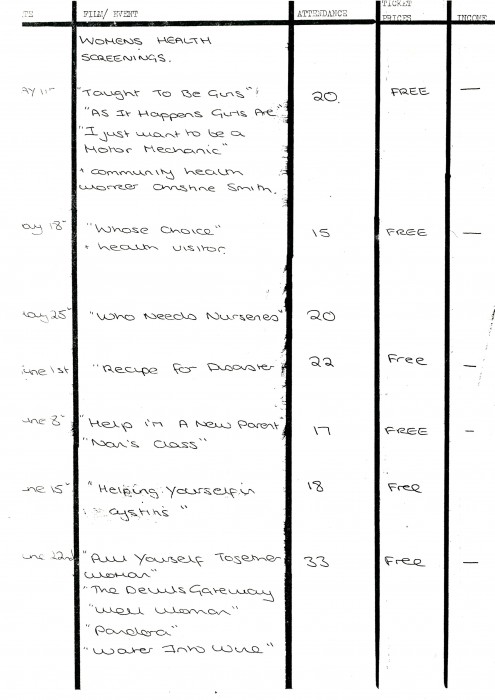 TE FILM/ EVENT ATTENDANCE TICKET PRICES INCOME
WOMENS HEALTH
SCREENINGS.
AY 11th "Taught To Be Girls"; 20. FREE —
"As It Happens Girls Are"
"I just want to be a
Motor Mechanic"
+ community health
worker Christine Smith.
ay 18th "Whose Choice" 15 FREE —
+ health visitor.
ay 25th "Who Needs Nurseries" 20
une 1st "Recipe for Disaster" 22 Free —
une 8th "Help I'm A New Parent" 17 FREE —
"Nan's Class"
ne 15th "Helping Yourself in 18 Free
cystitis"
une 22nd "Pull Yourself Together 33 Free —
Woman"
"The Devils Gateway
"Well Woman"
"Pandora"
"Water Into Wine"